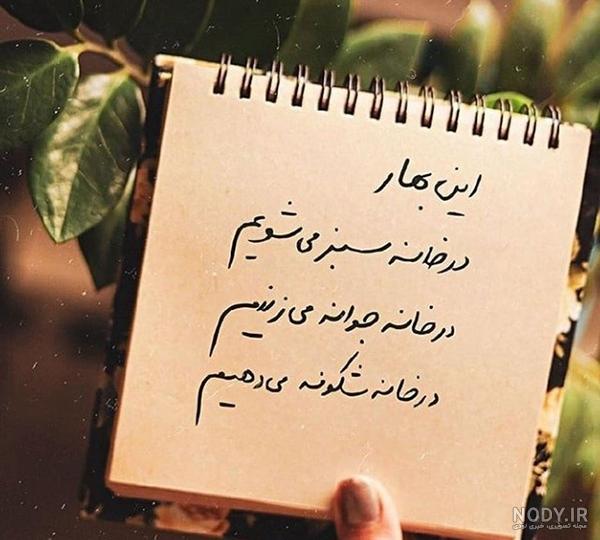 این بهار
در خانه سبز می شویم
در خانه جوانه می زنیم
در خانه شکوفه می دهیم
NODY.IR
مجله تصویری، خبری نودی